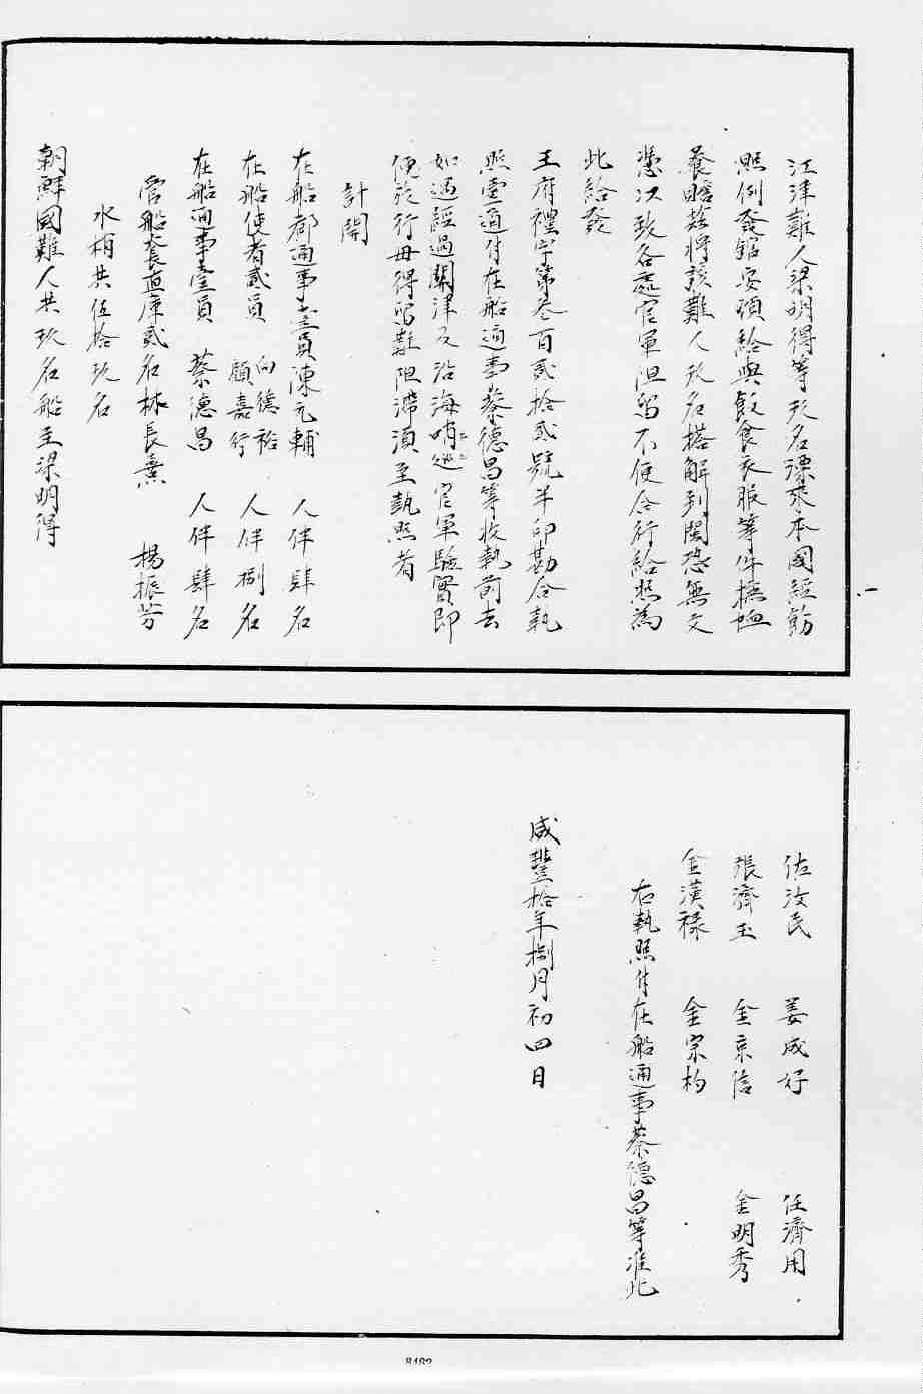 江津難人梁明得等玖名漂來本國經飭
照例發館安頓給與飲食衣服等件撫恤
養贍茲將該難人玖名搭解到閩恐無文
憑以致各處官軍阻留不便合行給照為
此給發
王府禮字第叁百貳拾貳號半印勘合執
照壹道付在船通事蔡德昌等收執前去
如遇經過關津及沿海哨巡官軍驗實即
便放行毋得留難阻滯須至執照者
計開
在船都通事壹員陳元輔 人伴肆名
在船使者貳員 向德裕 顧嘉行 人伴捌名
在船通事壹員 蔡德昌 人伴肆名
管船夥長直庫貳名林長熹 楊振芬
水梢共伍拾玖名
朝鮮國難人共玖名船主梁明得
佐汝民 姜成好 任濟用
張濟玉 金京信 金明秀
金漢祿 金宗杓
右執照付在船通事蔡德昌等准此
咸豐拾年捌月初四日